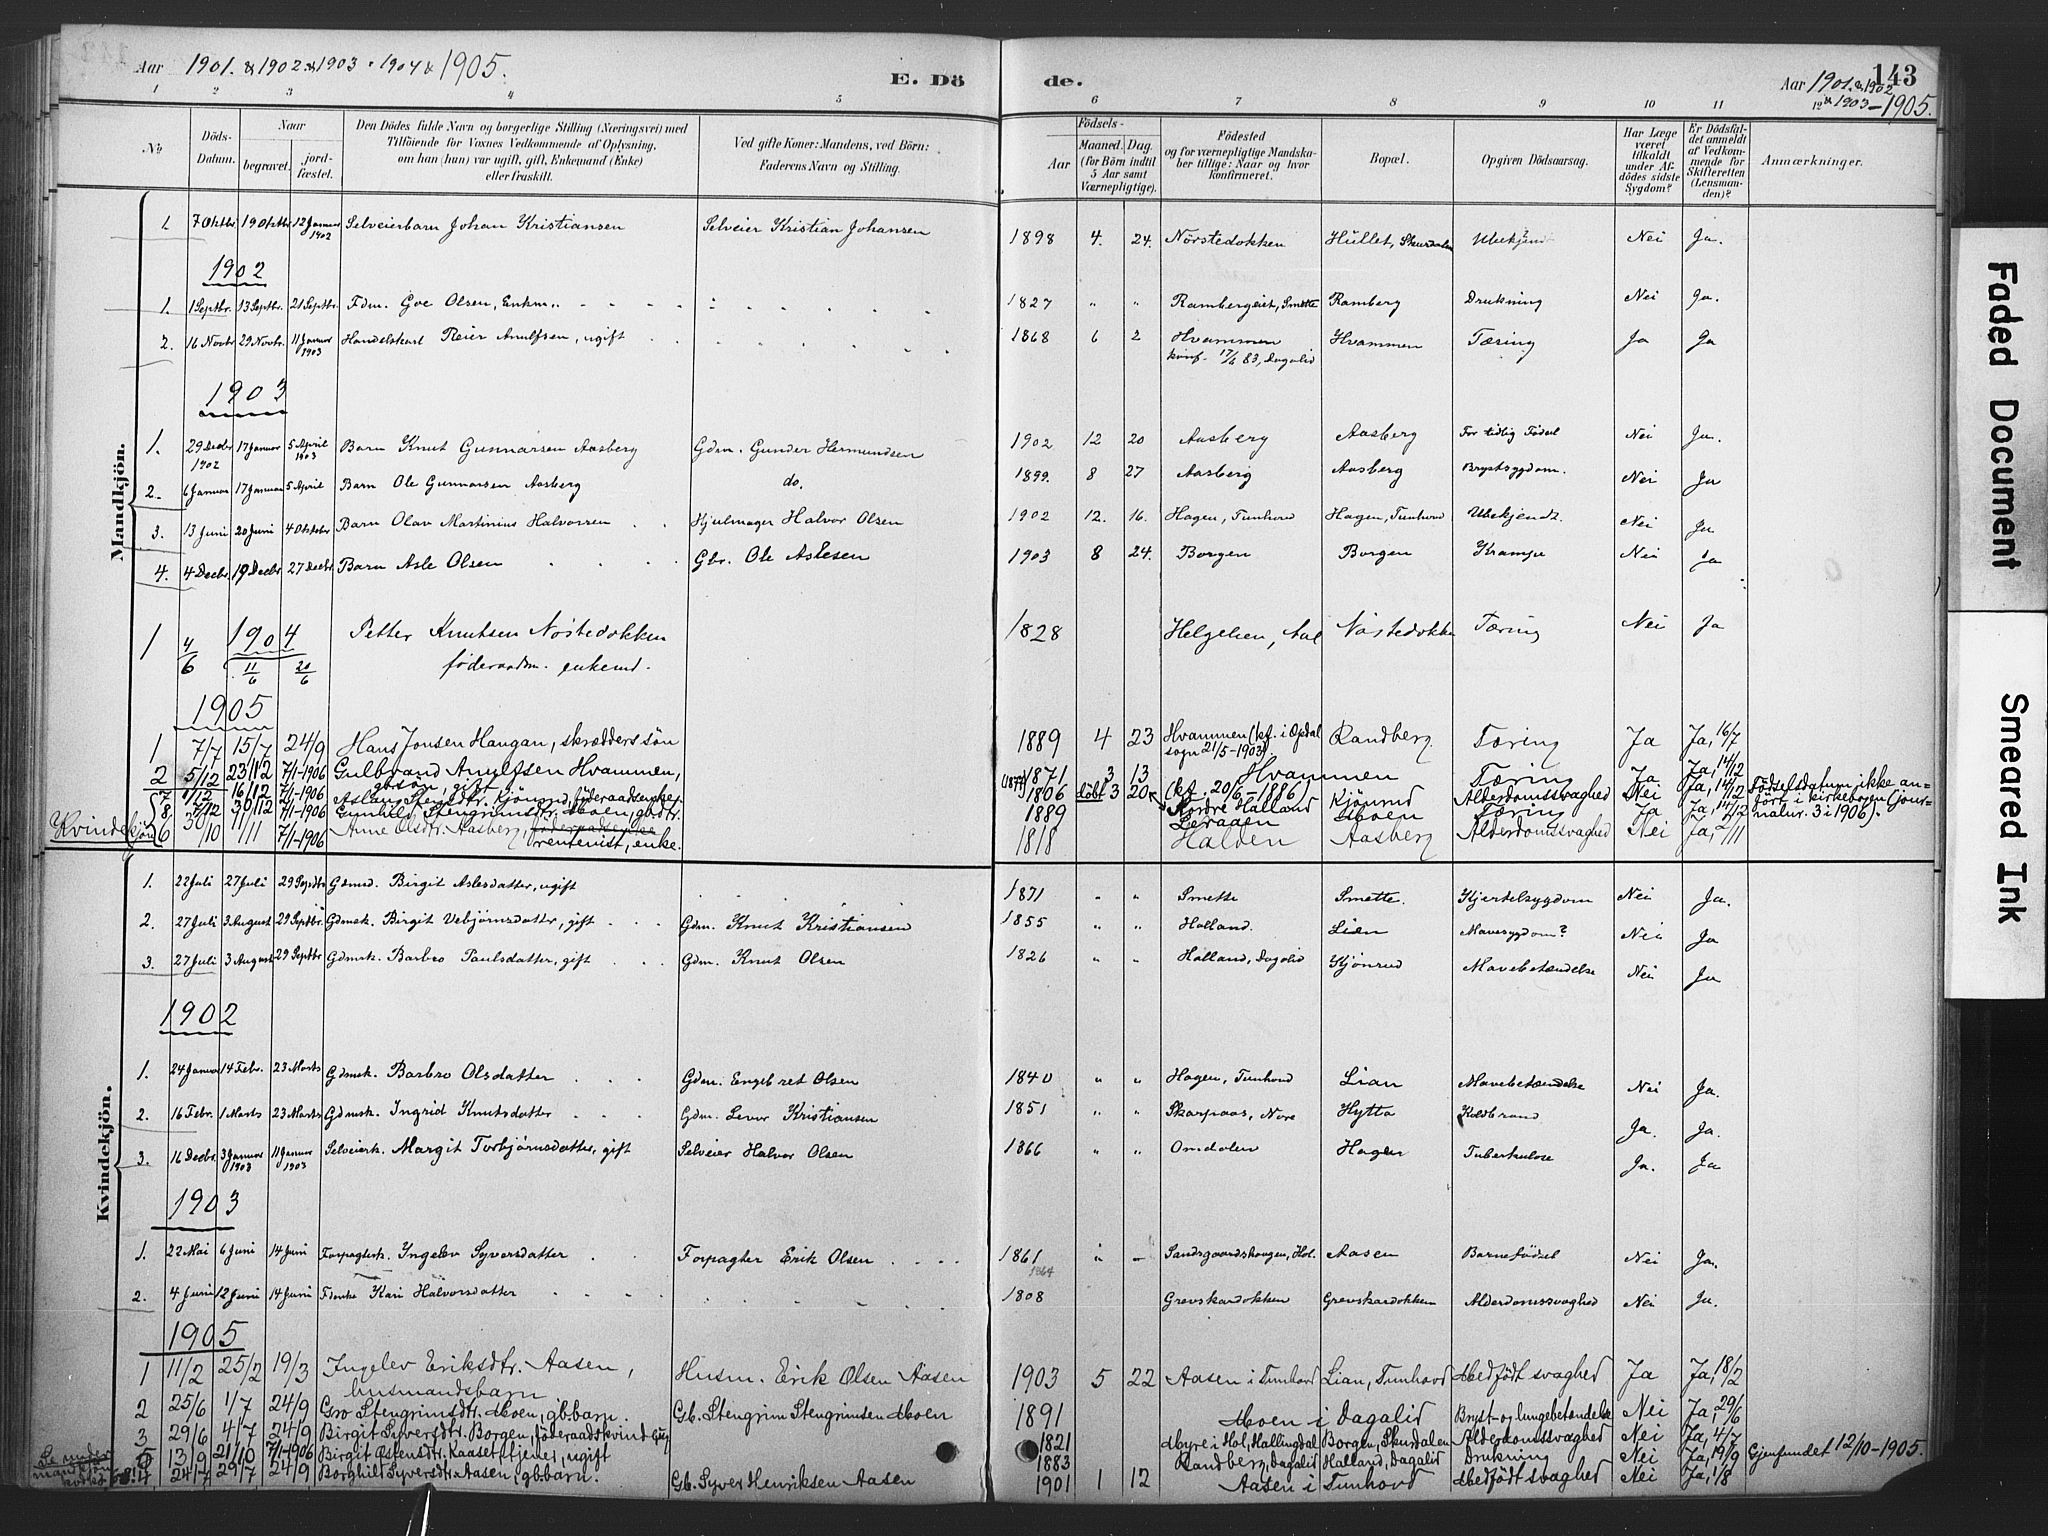 Aar 1901. & 1902 & 1903 & 1904 & 1905.
E. Dö
de.
143
Aar 1901. & 1902
& 1903 – 1905.
1 2 3 4 5 6 7 8 9 10 11 12
No.
Döds-Datum.
Naar
begravet.
jord-fæstet.
Den Dödes fulde Navn og borgerlige Stilling (Næringsvei) med
Tilföiende for Voxnes Vedkommende af Oplysning,
om han (hun) var ugift, gift, Enkemand (Enke)
eller fraskilt.
Ved gifte Koner: Mandens, ved Börn:
Faderens Navn og Stilling.
Födsels-
Aar
Maaned. Dag.
(for Börn indtil
5 Aar samt
Værnepligtige).
Födested
og for værnepligtige Mandska-
ber tillige: Naar og hvor
konfirmeret.
Bopæl.
Opgiven Dödsaarsag.
Har Læge
været
tilkaldt
under Af-
dödes sidste
Sygdom?
Er Dödsfal-
det anmeldt
af Vedkom-
mende for
Skifteretten
(Lensman-
den)?
Anmærkninger.
Mandkjön.
1. 7 Oktbr 19 Oktbr 12 Januar 1902 Selveierbarn Johan Kristiansen Selveier Kristian Johansen 1898 4. 24. Nörstedokken Hullet, Skurdalen Ubekjendt Nei Ja.
1902
1. 1 Septbr. 13 Septbr. 21 Septbr Fdm. Goe Olsen, Enkm. 1827 " " Rambergeiet, Smette Ramberg Drukning Nei Ja.
2. 16 Novbr 29 Novbr. 11 Januar 1903 Handelskarl Reier Arnulfsen, ugift 1868 6 2 Hvammen Hvammen Tæring Ja Ja
konf. 17/6 83, Dagalid
1903
1. 29 Decbr 1902 17 Januar 5 April 1903 Barn Knut Gunnarsen Aasberg Gdm. Gunder Hermundsen 1902 12 20 Aasberg Aasberg For tidlig Födsel Nei Ja.
2. 6 Januar 17 Januar 5 April Barn Ole Gunnarsen Aasberg do. 1899. 8 27 Aasberg Aasberg Brystsygdom. Nei Ja
3. 13 Juni 20 Juni 4 Oktober Barn Olav Martinius Halvorsen Hjulmager Halvor Olsen 1902 12. 16. Hagen, Tunhovd Hagen, Tunhovd Ubekjendt. Nei Ja
4. 4 Decbr. 19 Decbr 27 Decbr Barn Asle Olsen Gbr. Ole Aslesen 1903 8 24. Borgen Borgen Krampe Nei Ja
1904
1 4/6 11/6 20/6 Petter Knutsen Nöstedokken 1828 Helgelien, Aal Nöstedokken Tæring Nei Ja
föderaadsm. enkemd.
1905
1 7/7 15/7 24/9 Hans Jonsen Haugan, skrædders sön 1889 4 23 Hvammen (kf. i Opdal Randberg Tæring Ja Ja, 16/7
sogn 21/5-1903).
2 5/12 23/12 7/1-1906 Gulbrand Arnulfsen Hvammen, (1877) 1871 3 13 Hvammen Tæring Ja Ja, 14/2
gbsön, gift (kf. 20/6 – 1886)
7 1/12 16/12 7/1-1906 Aslaug Stensdtr. Kjönrud, föderaadsenke 1806 döbt 3 20 Nordre Halland Kjönrud Alderdomssvaghed Nei Ja, 14/12 Födselsdatum ikke an-
fört i kirkebogen (jour-
natur. 3 i 1906).
8 7/12 30/12 7/1-1906 Gunhild Stengrimsdtr. Moen, gbdtr. 1889 Leraaen Moen Tæring Ja Ja, 14/12
Kvindekjön 6 30/10 11/11 7/1-1906 Anne Olsdtr. Aasberg, föderaadsenke 1818 Halden Aasberg Alderdomssvaghed Nei Ja, 2/11
rentenist, enke.
Kvindekjön.
1. 22 Juli 27 Juli 29 Septbr Gdmd. Birgit Aslesdatter, ugift 1871 " " Smette Smette. Kjertelsygdom Nei Ja.
2. 27 Juli 3 August 29 Septbr. Gdmsk. Birgit Vebjörnsdatter, gift Gdm. Knut Kristiansen 1855 " " Halland. Lian Mavesygdom? Nei Ja
3. 27 Juli 3 August 29 Septbr Gdmsk. Barbro Paulsdatter, gift Gdm. Knut Olsen 1826 " " Halland, Dagalid Kjönrud Mavebetændelse Nei Ja
1902
1. 24 Januar 14 Febr. 23 Marts Gdmsk. Barbro Olsdatter Gdm. Engebret Olsen 1840 " " Hagen, Tunhovd Lian Mavebetændelse Nei Ja.
2. 16 Febr. 1 Marts 23 Marts Gdmsk. Ingrid Knutsdatter Gdm. Levor Kristiansen 1851 " " Skarpaas, Nore Hytta Koldbrand Ja. Ja.
3. 16 Decbr. 3 Januar 1903 11 Januar 1903 Selveierk. Margit Torbjörnsdatter, gift Selveier Halvor Olsen 1866 " " Omdalen Hagen Tuberkulose Ja. Ja
1903
1. 22 Mai 6 Juni 14 Juni Forpagterk. Ingelev Syversdatter Forpagter Erik Olsen 1861 " – Sandsgaardshaugen, Hol. Aasen Barnefödsel Nei Ja.
1864
2. 4 Juni 12 Juni 14 Juni Fdenke Kari Halvorsdatter 1808 Grevskardokken Grevskardokken Alderdomssvaghed Nei Ja.
1905
1 11/2 25/2 19/3 Ingelev Eriksdtr. Aasen, Husm. Erik Olsen Aasen 1903 5 22 Aasen i Tunhovd Lian, Tunhovd Medfödt svaghed Ja Ja, 18/2
husmandsbarn
2 25/6 1/7 24/9 Gro Stengrimsdtr. Moen, gb.barn. Gb. Stengrim Stengrimsen Moen 1891 Moen i Dagalid Bryst- og lungebetændelse Nei Ja, 29/6
3 29/6 4/7 24/9 Birgit Syversdtr. Borgen, föderaadskvinde 1821 Myre i Hol, Hallingdal Borgen, Skurdalen Alderdomssvaghed Nei Ja, 4/7
5 13/9 21/10 7/1-1906 Birgit Östensdtr. Kaaset, tjener, ugift 1883 Randberg, Dagalid Halland, Dagalid Drukning Nei Ja, 19/9 Gjenfundet 12/10-1905.
4 24/7 29/7 24/9 Borghild Syversdtr. Aasen, gb.barn. Gb. Syver Henriksen Aasen 1901 1 12 Aasen i Tunhovd Medfödt svaghed Nei Ja, 1/8
Se under
mandkjön
Faded Document
Smeared Ink